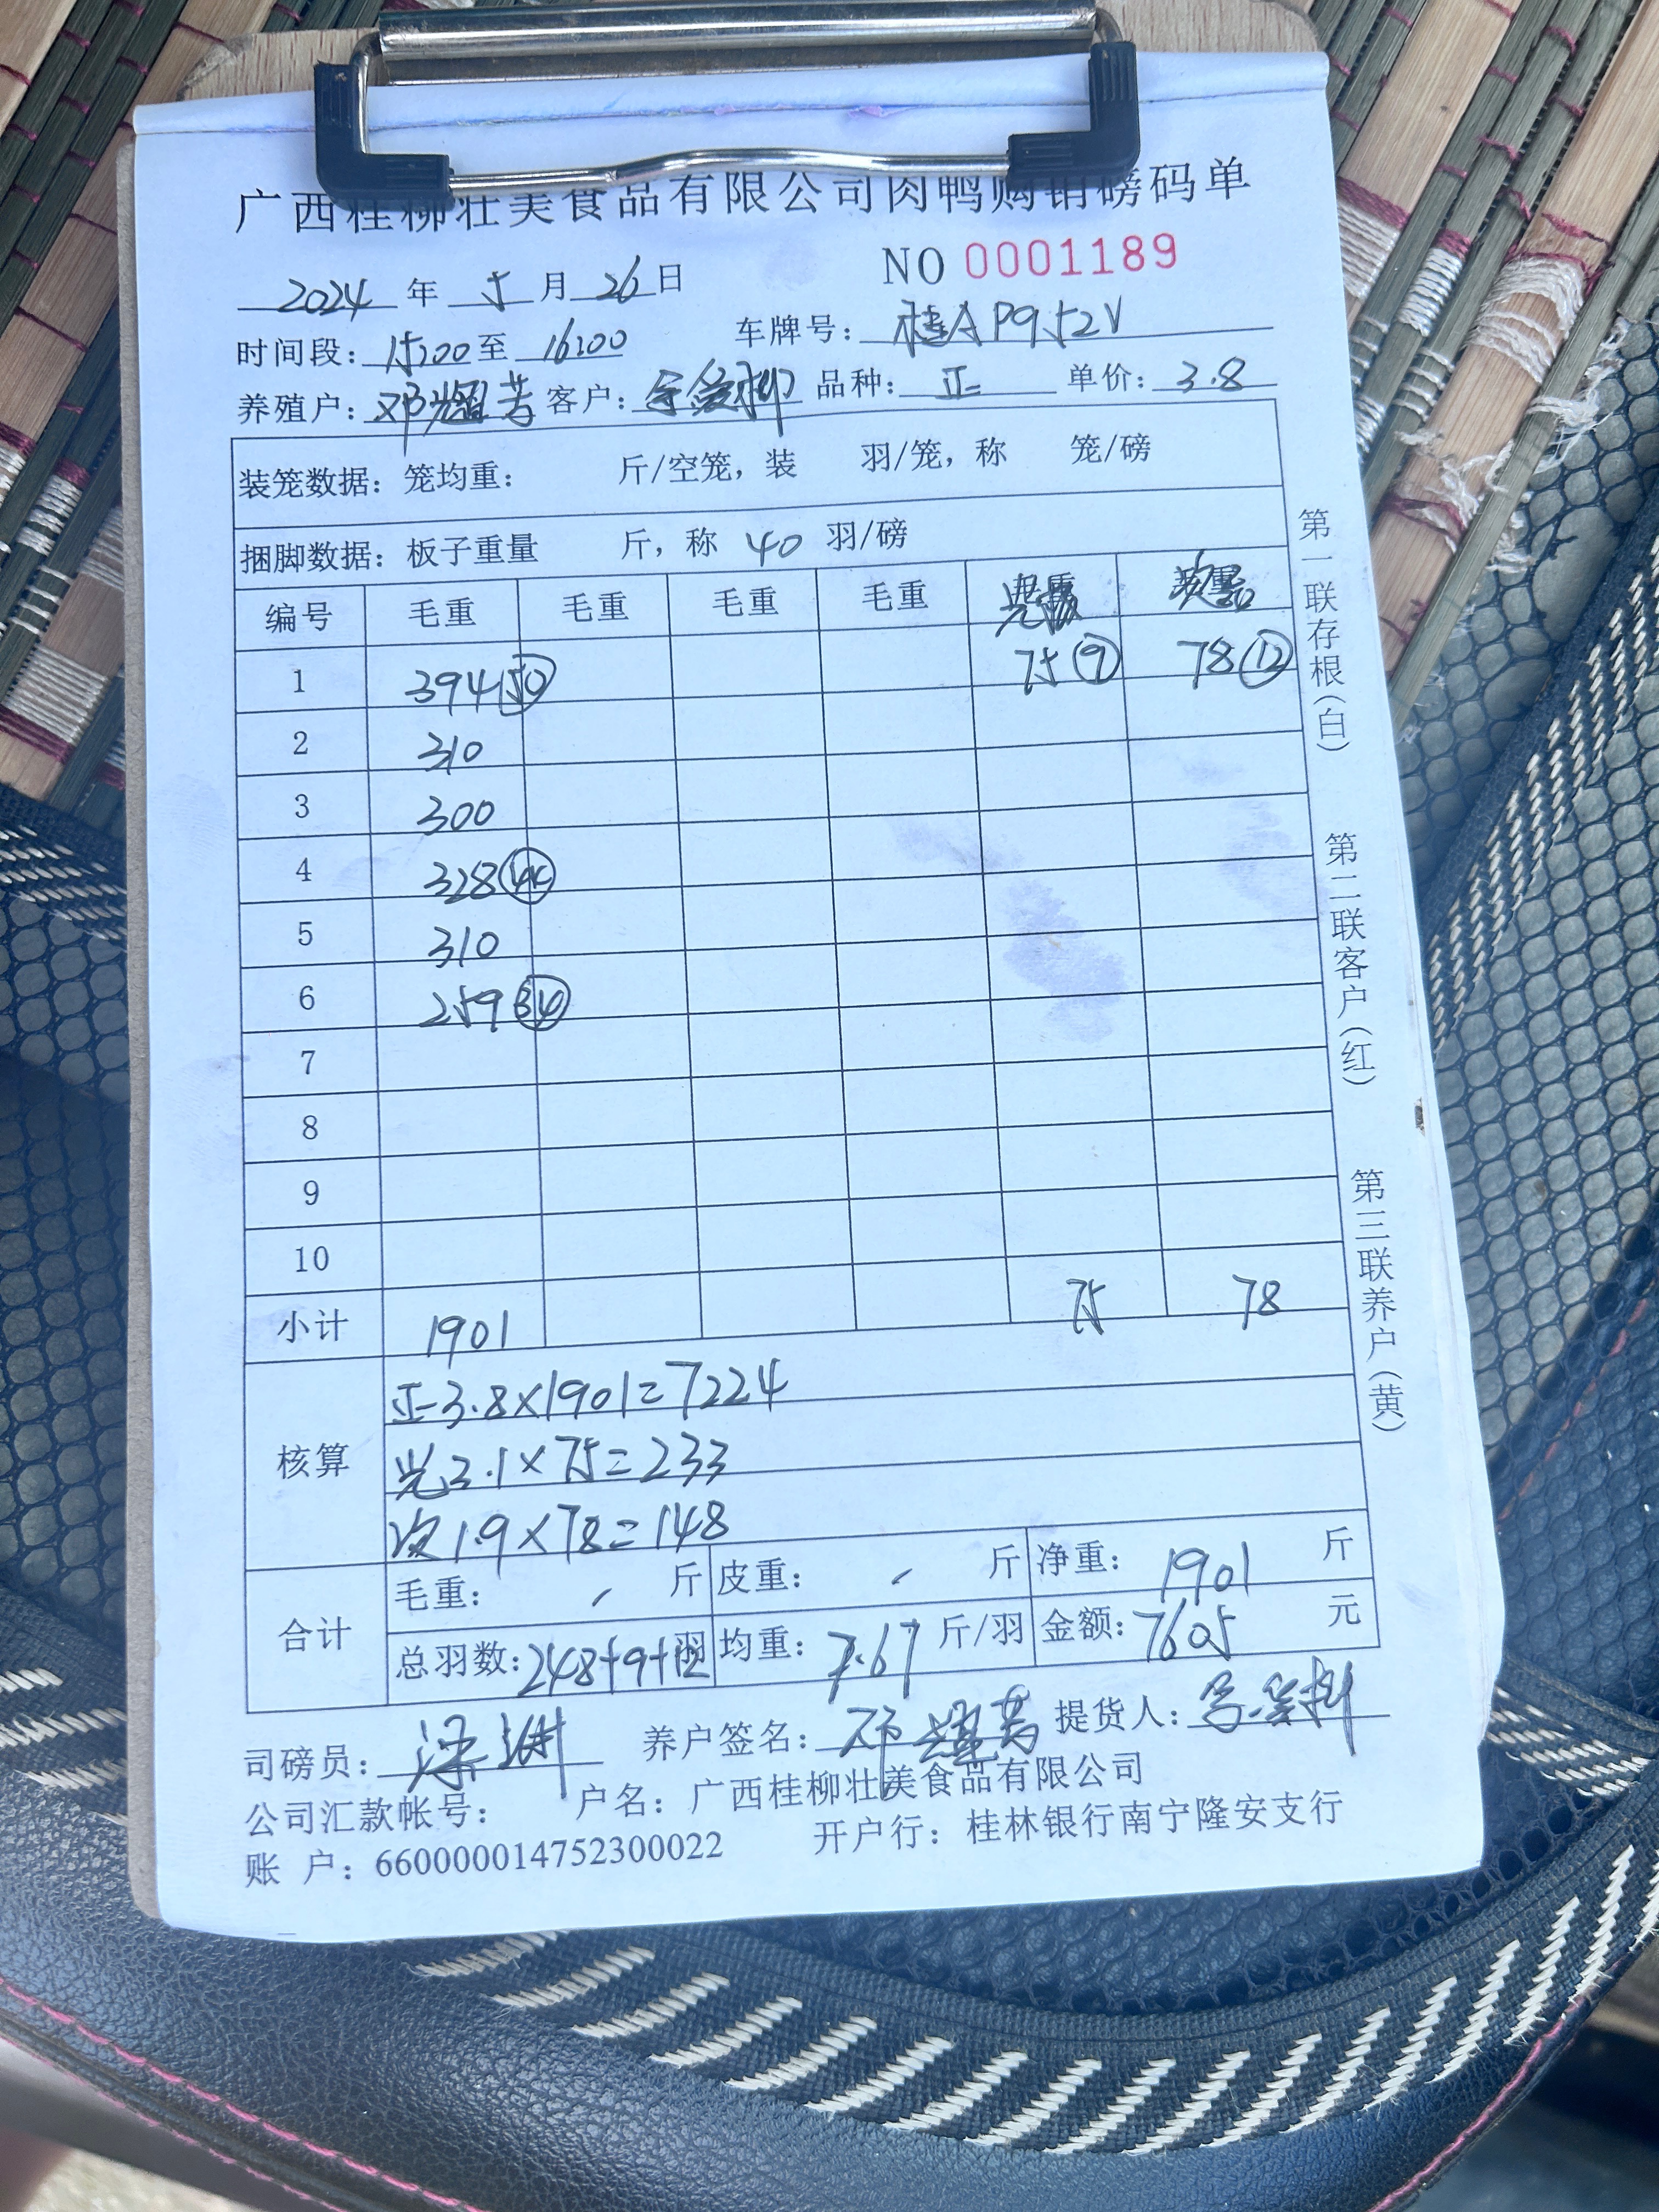 广西桂柳壮美食品有限公司肉鸭购销磅码单
NO 0001189
2024 年 5 月 26 日
时间段: 15:00 至 16:00 车牌号: 桂A P952V
养殖户: 邓耀芳 客户: 品种: 正 单价: 3.8
装笼数据: 笼均重: 斤/空笼, 装 羽/笼, 称 笼/磅
捆脚数据: 板子重量 斤, 称 40 羽/磅
编号 毛重 毛重 毛重 毛重
1 394 50 75 9 78 12
2 310
3 300
4 328 44
5 310
6 259 34
7
8
9
10
小计 1901 75 78
核算
正-3.8×1901=7224
光3.1×75=233
次1.9×78=148
合计
毛重: 斤 皮重: 斤 净重: 1901 斤
总羽数: 248+9+12 均重: 7.67 斤/羽 金额: 7605 元
司磅员: 梁 养户签名: 邓耀芳 提货人:
公司汇款帐号: 户名: 广西桂柳壮美食品有限公司
账 户: 660000014752300022 开户行: 桂林银行南宁隆安支行
第一联存根(白) 第二联客户(红) 第三联养户(黄)